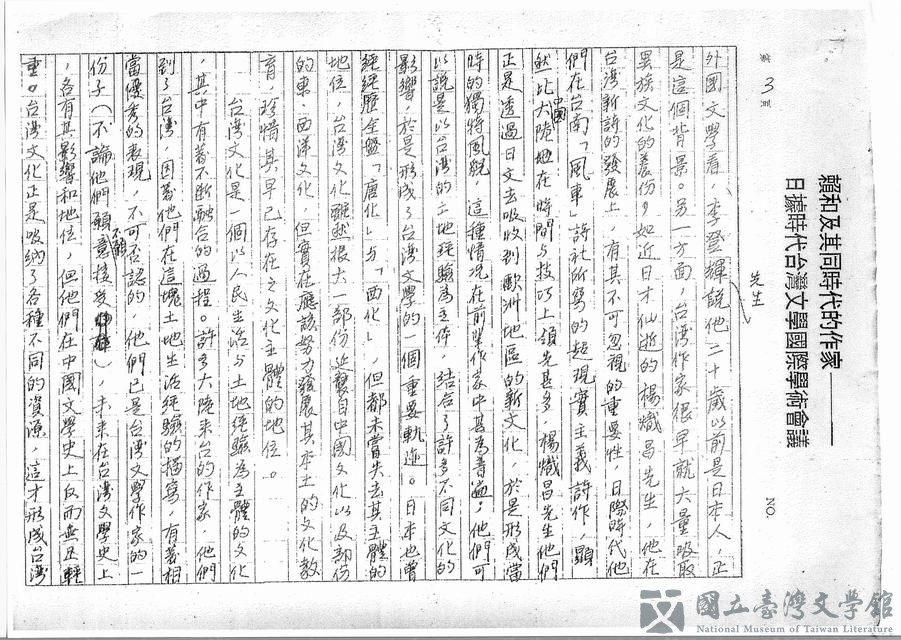 賴和及其同時代的作家——
日據時代台灣文學國際學術會議
NO.
第3頁
先生
外國文學看,李登輝說他二十歲以前是日本人,正
是這個背景。另一方面,台灣作家很早就大量吸取
異族文化的養份,如近日才仙逝的楊熾昌先生,他在
台灣新詩的發展上,有其不可忽視的重要性,日據時代他
們在台南「風車」詩社所寫的超現實主義詩作,顯
然比中國大陸地在時間与技巧上領先甚多,楊熾昌先生他們
正是透過日文去吸收到歐洲地區的新文化,於是形成當
時的獨特風貌,這種情況在前輩作家中甚為普遍。他們可
以說是以台灣的土地經驗為主体,結合了許多不同文化的
影響,於是形成了台灣文學的一個重要軌迹。日本也曾
經經歷全盤「唐化」与「西化」,但都未嘗失去其主體的
地位,台灣文化雖然很大一部份近襲自中國文化以及部份
的東、西洋文化,但實在應該努力發展其本土的文化教
育,珍惜其早已存在之文化主體的地位。
台灣文化是一個以人民生活与土地經驗為主體的文化
,其中有著不斷融合的過程。許多大陸來台的作家,他們
到了台灣,因著他們在這塊土地生活經驗的描寫,有著相
當優秀的表現,不可否認的,他們已是台灣文學作家的一
份子(不論他們願意不願意接受),未來在台灣文學史上
,各有其影響和地位,但他們在中國文學史上反而無足輕
重。台灣文化正是吸納了各種不同的資源,這才形成台灣
國立臺灣文學館
National Museum of Taiwan Literature